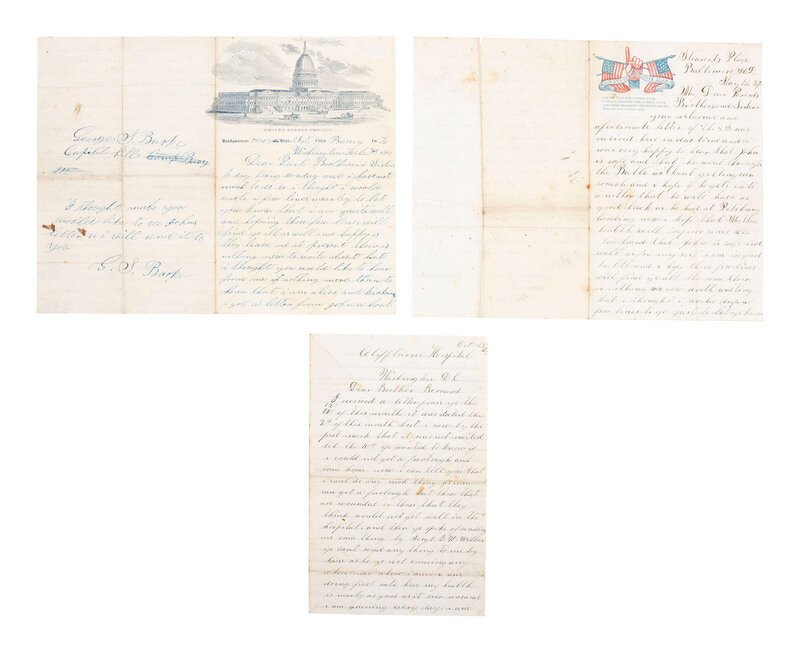 George S. Barke
Capitol Hill
I thought maby you
would like to see
letter so i will send it to
you
G. S. Barke
UNITED STATES CAPITOL
Headquarters
Washington
Dear Parents Brothers and Sisters
to day being sunday and i have not
much to do so i thought i would
write a few lines merly to let
you know that i am quite well
and hoping these few lines will
find ye all as well and happy as
they leave me at present there is
nothing new to write about but
i thought you would like to hear
from me if nothing more than to
hear that i am alive and kicking
i got a letter from john a bout
Stewards Place
Baltimore Md.
My Dear Parents
Brothers and Sisters
your welcome and
affectionate letter of the was
received here in due time and i
was very happy to hear that John
is safe and that he went through
the Battle without getting a
scrach and i hope if he gets in to
a nother that he will have as
good luck as he had at Pitsburg
landing
health will improve
i am in good
health and i hope these few lines
will find you all the same there
is nothing new worth writing
but i thought i would drop a
few lines to ye just to let ye know
Cliffburne Hospital
Washington D.C.
Dear Brother Bernard
I received a letter from ye the
12 of this month it was dated the
2nd of this month but i saw by the
post mark that it was not mailed
till the 10th ye wanted to know if
i could not get a furlough and
come home now i can tell you that
i cant do any such thing as none
can get a furlough but those that
are wounded or those that they
think would not get well in the
hospital, and then ye spoke of sending
me some thing by Sergt
ye cant send any thing to me by
him as he is not coming any
where near where i am i am
doing first rate here my health
is nearly as good as it ever was and
i am gaining every day i am